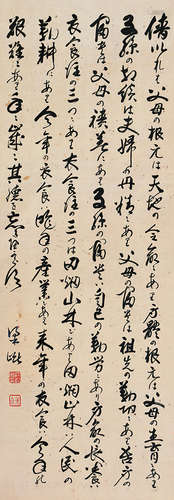 父母の根元は天地の令命にあり身體の根元は父母の生育にあり
子孫の相続は夫婦の丹精にあり父母の富貴は祖先の勤功にあり吾身の
富貴は父母の積善にあり子孫の富貴は自己の勤労にあり身命長養は
衣食住の三つにあり衣食住の三つは田畑山林にあり田畑山林は人民の
勤耕にあり今年の衣食は昨年の産業にあり来年の衣食は今年の
艱難にあり年々歳々其徳を忘るべからず